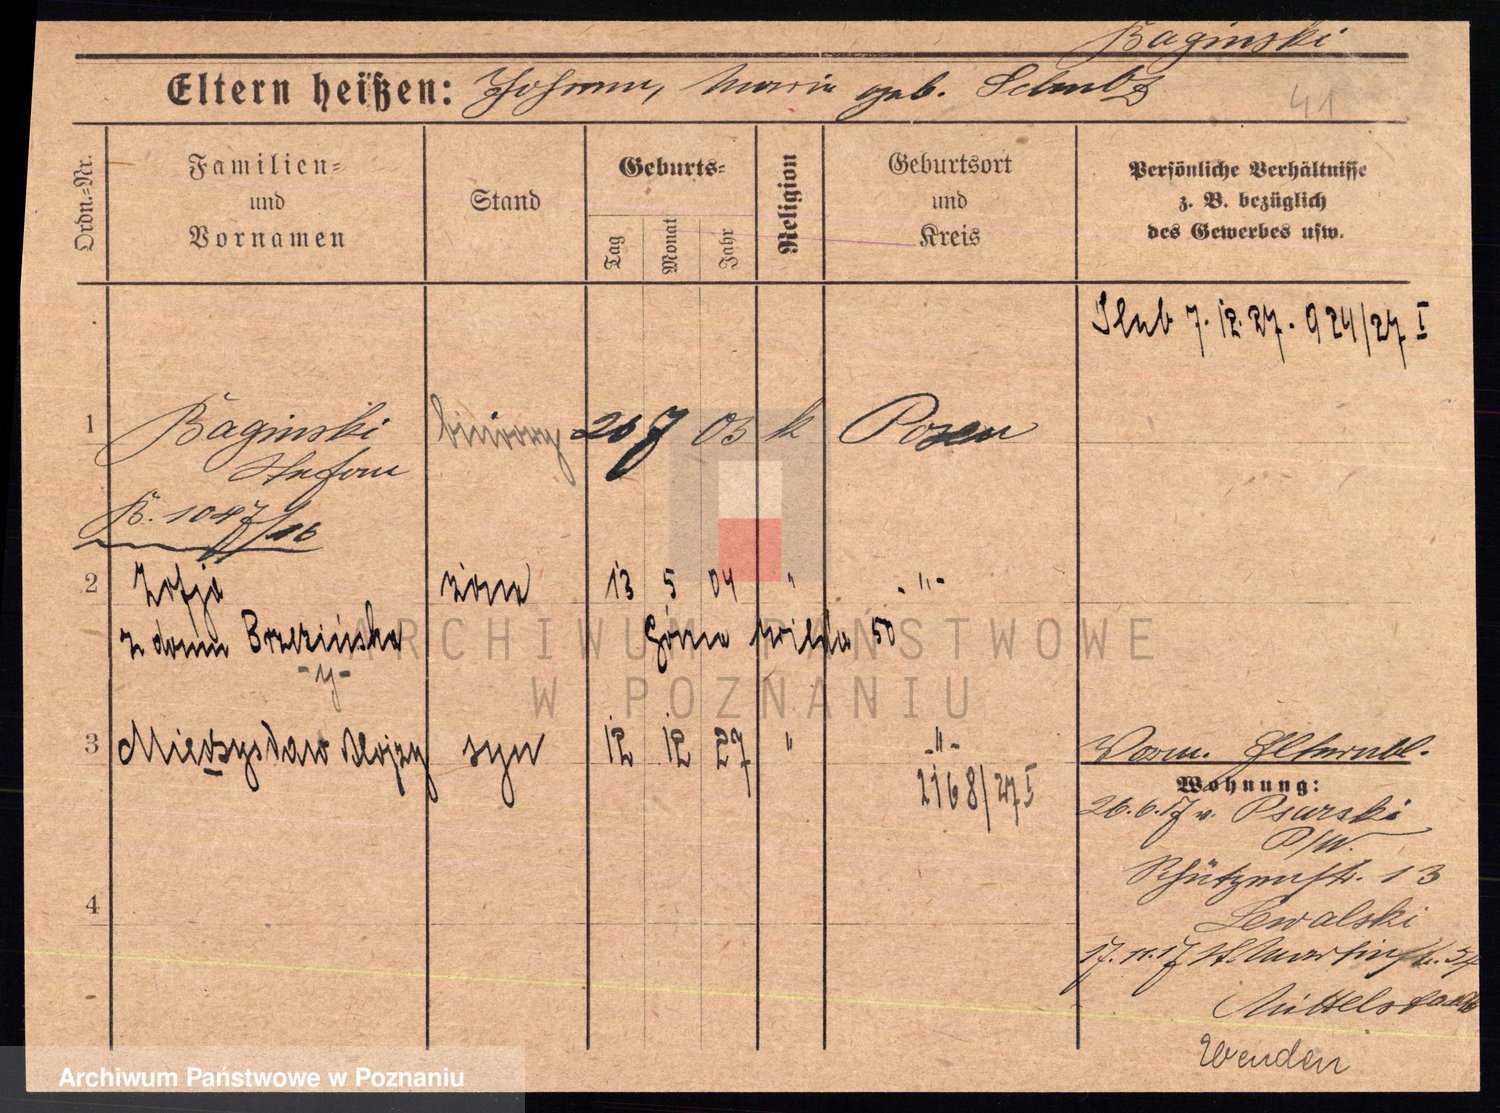 Baginski
Eltern heißen: Johann, Maria geb. Schulz
41
Ordn.=Nr.
Familien=
und
Vornamen
Stand
Geburts=
Tag
Monat
Jahr
Religion
Geburtsort
und
Kreis
Persönliche Verhältnisse
z. B. bezüglich
des Gewerbes usw.
Slub 7. 12. 27. 924/27 I
1 Baginski 26 7 03 k Posen
Stefan
B. 1047/16
2 Zofja żona 13 5 04 " -"-
z domu Brzezińska Górna Wilda 50
-y-
3 Mieczysław Alojzy syn 12 12 27 " -"-
2168/27 I
Vorm. Elternbl.
Wohnung:
26.6.17 v. Psurski
P/W.
Schützenstr. 13
Lewalski
17.11.17 St. Martinstr.
Mittelstaedt
Wenden
4
ARCHIWUM PAŃSTWOWE
W POZNANIU
Archiwum Państwowe w Poznaniu